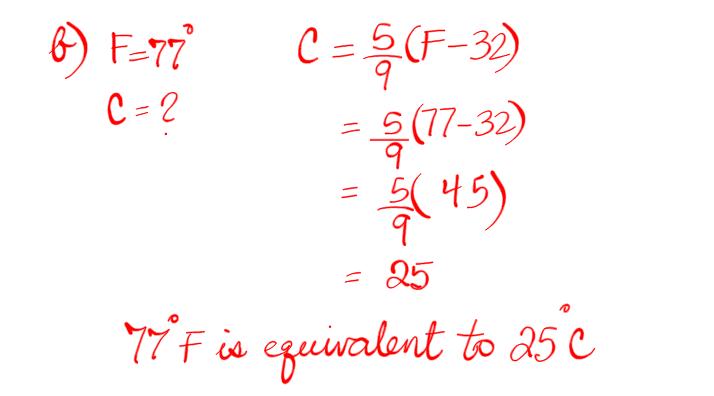 b) F=77° C = 5/9 (F-32)
C = ? = 5/9 (77-32)
= 5/9 (45)
= 25
77°F is equivalent to 25°C